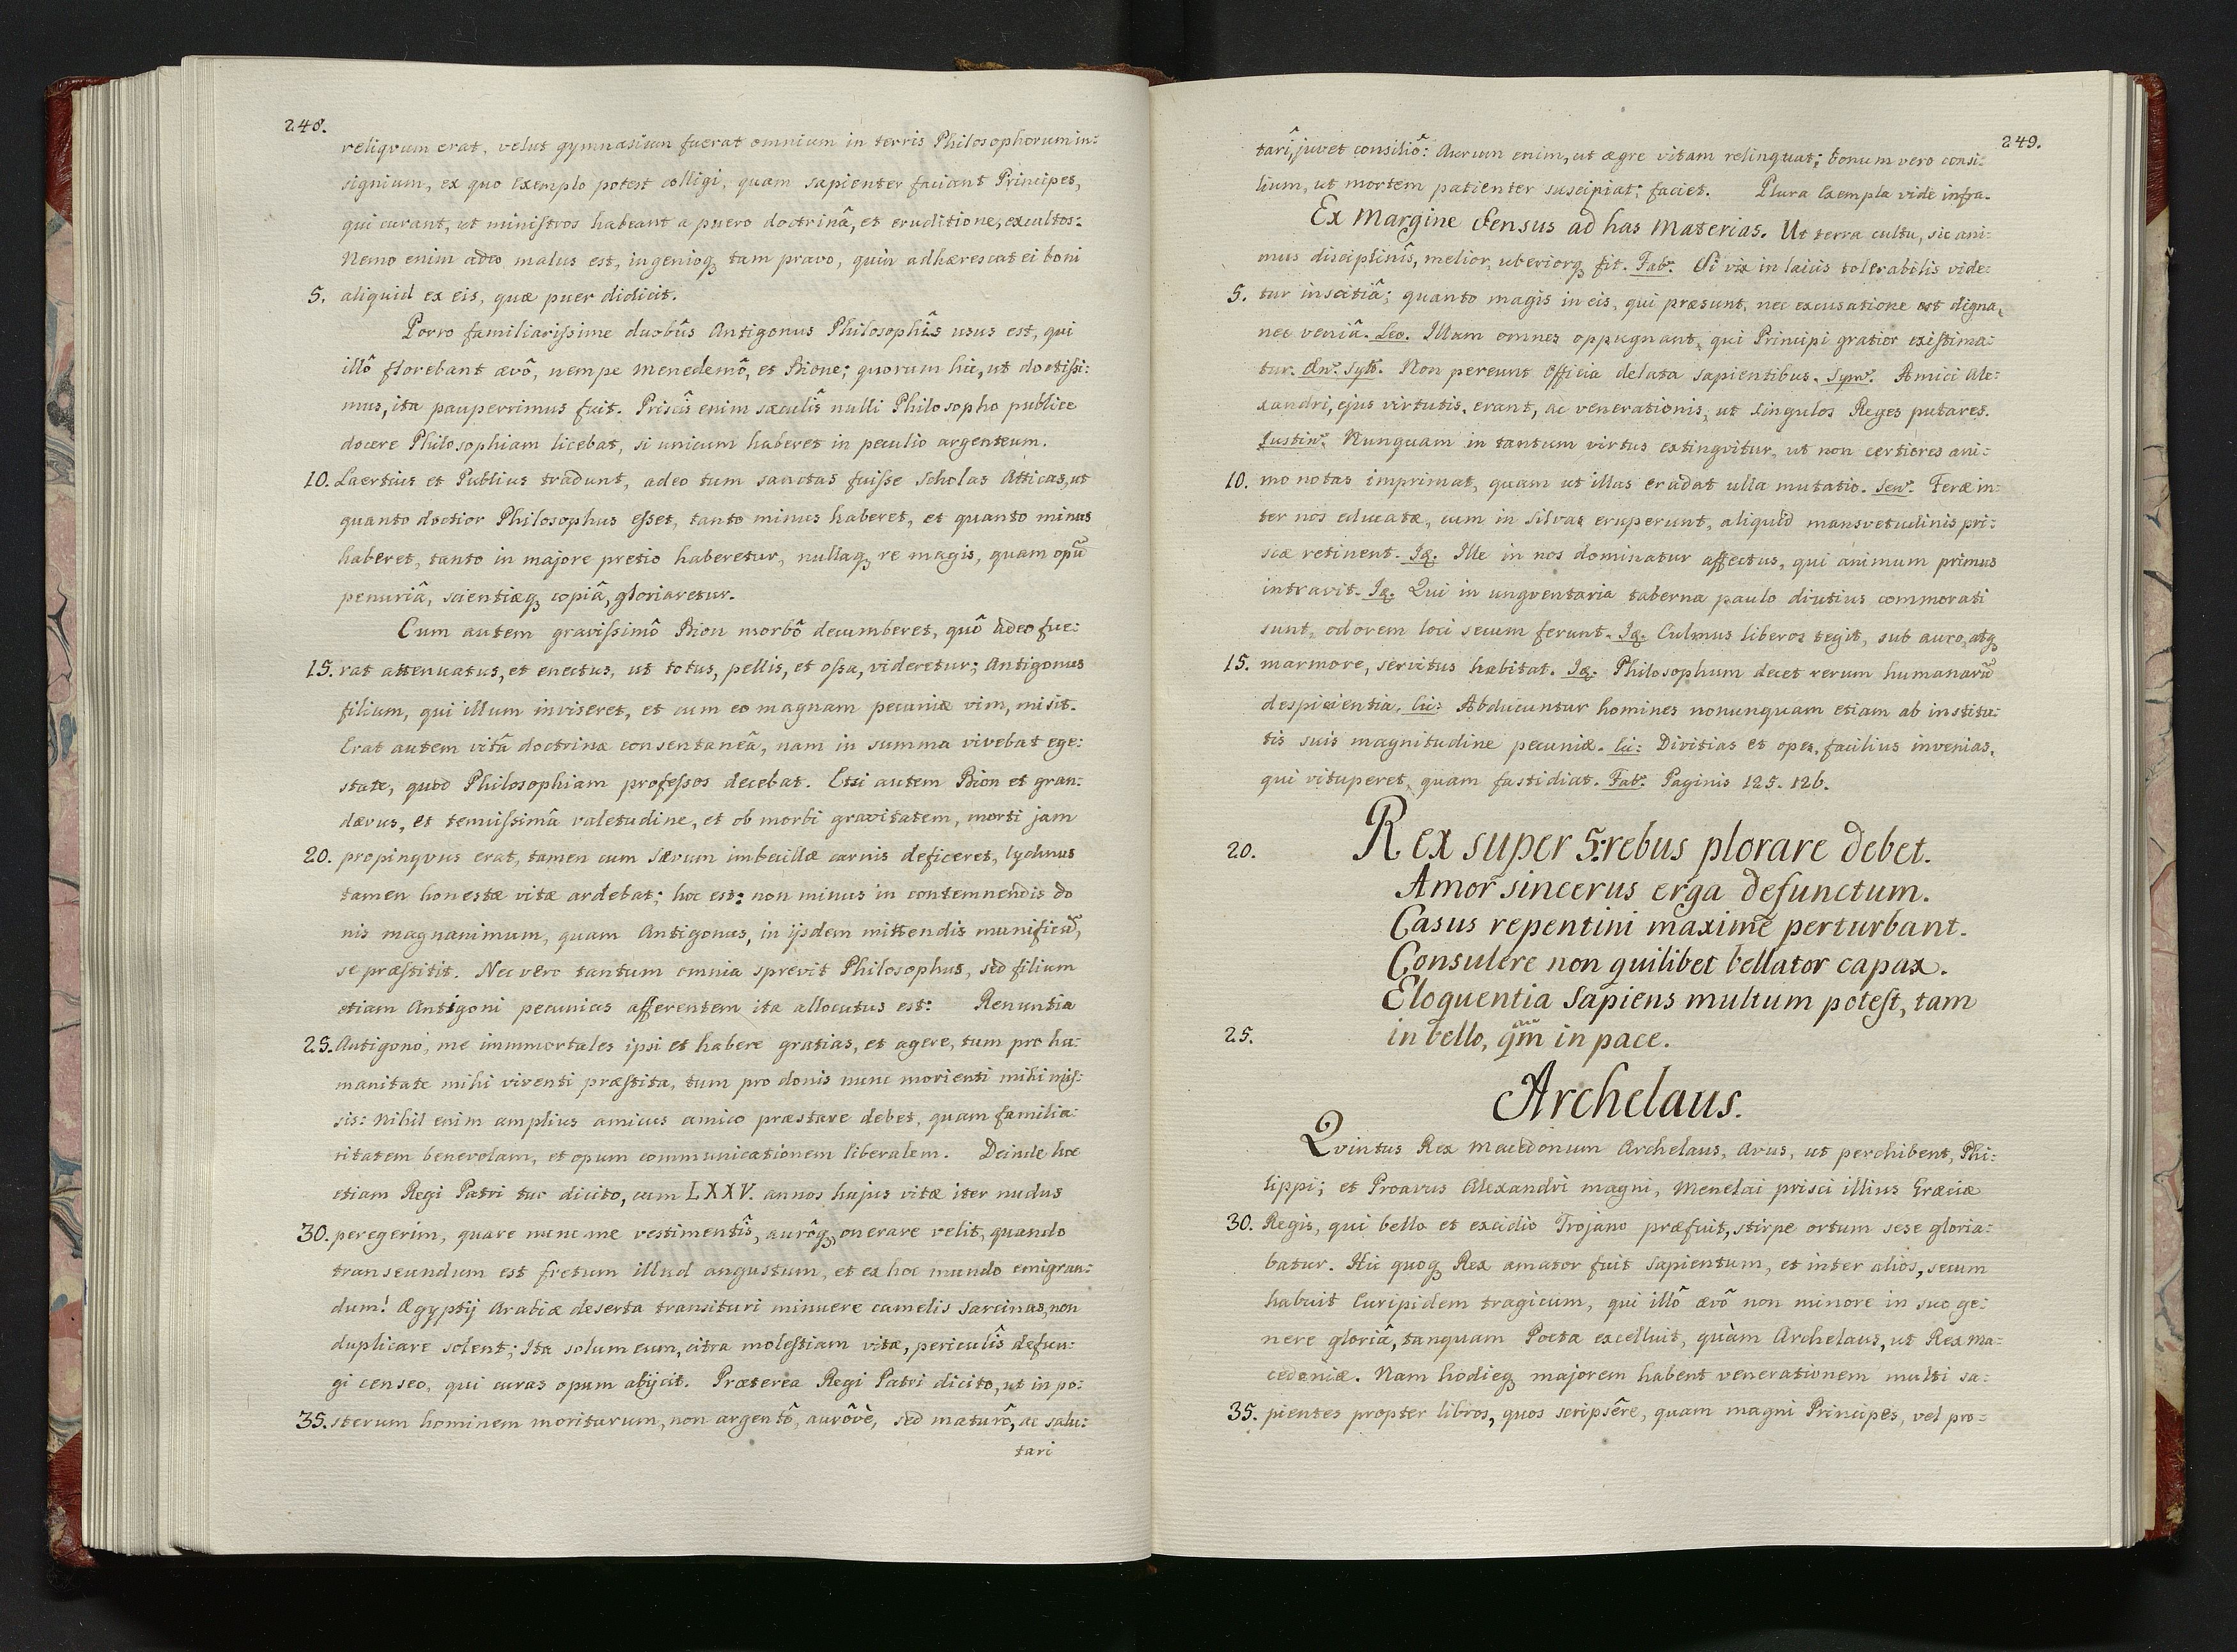 248.
reliqvum erat, velut gymnasium fuerat omnium in terris Philosophorum in:
signium, ex quo exemplo potest colligi, quam sapienter faciant Principes,
qui curant, ut ministros habeant a puero doctrinâ, et eruditione, excultos:
Nemo enim adeo malus est, ingenioq₃ tam pravo, quin adhærescat ei boni
5. aliquid ex eis, quæ puer didicit.
Porro familiarissime duobûs Antigonus Philosophîs usus est, qui
illô florebant ævô, nempe Menedemô, et Bione; quorum hic, ut doctissi:
mus, ita pauperrimus fuit. Priscîs enim sæculîs nulli Philosopho publice
docere Philosophiam licebat, si unicum haberet in peculio argenteum.
10. Laertius et Publius tradunt, adeo tum sanctas fuisse Scholas Atticas, ut
quanto doctior Philosophus esset, tanto minus haberet, et quanto minus
haberet, tanto in majore pretio haberetur, nullaq₃ re magis, quam opũ
penuriâ, scientiæq₃ copiâ, gloriaretur.
Cum autem gravissimô Bion morbô decumberet, quô adeo fue:
15. rat attenuatus, et enectus, ut totus, pellis, et ossa, videretur; Antigonus
filium, qui illum inviseret, et cum eo magnam pecuniæ vim, misit.
Erat autem vitâ doctrinæ consentaneâ, nam in summa vivebat ege:
state, quod Philosophiam professos decebat. Etsi autem Bion et gran:
dævus, et tenuissimâ valetudine, et ob morbi gravitatem, morti jam
20. propinqvus erat, tamen cum sævum imbecillæ carnis deficeret, lychnus
tamen honestæ vitæ ardebat; hoc est: non minus in contemnendis do
nis magnanimum, quam Antigonus, in ijsdem mittendis munificũ,
se præstitit. Nec vero tantum omnia sprevit Philosophus, sed filium
etiam Antigoni pecunias afferentem ita allocutus est: Renuntia
25. Antigono, me immmortales ipsi et habere gratias, et agere, tum pro hu:
manitate mihi viventi præstita, tum pro donis nunc morienti mihi mis:
sis: Nihil enim amplius amicus amico præstare debet, quam familia:
ritatem benevolam, et opum communicationem liberalem. Deinde hoc
etiam Regi Patri tuo dicito, cum LXXV. annos hujus vitæ iter nudus
30. peregerim, quare nunc me vestimentîs, aurôq₃, onerare velit, quando
transeundum est fretum illud angustum, et ex hoc mundo emigran:
dum! Ægyptij Arabiæ deserta transituri minuere camelis sarcinas, non
duplicare solent; Ita solum eum, citra molestiam vitæ, periculîs defun:
gi censeo, qui curas opum abijcit. Præterea Regi Patri dicito, ut in po:
35. sterum hominem moriturum, non argentô, aurôvè, sed maturô, ac salu:
tari
249.
tarî, juvet consiliô: Aurum enim, ut ægre vitam relinquat; bonum vero consi:
lium, ut mortem patienter suscipiat; faciet. Plura Exempla vide infra.
Ex Margine Sensus ad has Materias. Ut terra cultu, sic ani:
mus disciplinîs, melior, uberiorq₃ fit. Fab: Si vix in laicis tolerabilis vide:
5. tur inscitiâ; quanto magis in eis, qui præsunt, nec excusatione est digna,
nec veniâ. Leo. Illum omnes oppugnant, qui Principi gratior existima:
tur. Æn: Sylv. Non pereunt Officia delata sapientibus. Sym: Amici Ale:
xandri, ejus virtutis, erant, ac venerationis, ut singulos Reges putares.
Justin: Nunquam in tantum virtus extingvitur, ut non certiores ani:
10. mo notas imprimat, quam ut illas eradat ulla mutatio. Sen: Feræ in:
ter nos educatæ, cum in silvas eruperunt, aliquid mansvetudinis pri:
scæ retinent. Iq₃. Ille in nos dominatur affectus, qui animum primus
intravit. Iq₃. Qui in ungventaria taberna paulo diutius commorati
sunt, odorem loci secum ferunt. Iq₃. Culmus liberos tegit, sub auro, atq₃
15. marmore, servitus habitat. Iq₃. Philosophum decet rerum humanarũ
despicientia. Cic: Abducuntur homines nonunquam etiam ab institu:
tis suis magnitudine pecuniæ. Cic: Divitias et opes, facilius invenias,
qui vituperet, quam fastidiat. Fab: Paginis 125. 126.
20. Rex super 5: rebus plorare debet.
Amor sincerus erga defunctum.
Casus repentini maximè perturbant.
Consulere non quilibet bellator capax.
Eloquentia Sapiens multum potest, tam
25. in bello, qm̃ in pace.
Archelaus.
Qvintus Rex Macedonum Archelaus, Avus, ut perhibent, Phi:
lippi; et Proavus Alexandri magni, Menelai prisci illius Græciæ
30. Regis, qui bello et excidio Trojano præfuit, stirpe ortum sese gloria:
batur. Hic quoq₃ Rex amator fuit Sapientum, et inter alios, secum
habuit Euripidem tragicum, qui illô ævô non minore in suo ge:
nere gloriâ, tanquam Poeta excelluit, quàm Archelaus, ut Rex Ma:
cedoniæ. Nam hodieq₃ majorem habent venerationem multi sa:
35. pientes propter libros, quos scripsêre, quam magni Principes, vel pro: